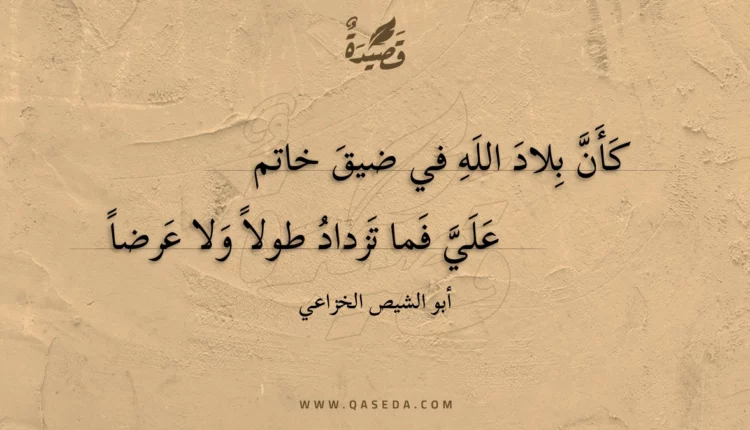 قَصِيدَةٌ
كَأَنَّ بِلادَ اللَهِ في ضيقَ خاتم
عَلَيَّ فَما تَزدادُ طولاً وَلا عَرضاً
أبو الشيص الخزاعي
WWW.QASEDA.COM